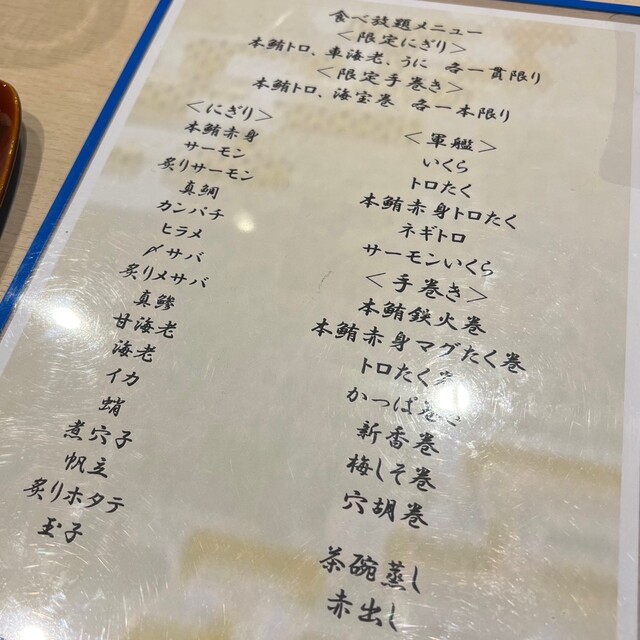 食べ放題メニュー
＜限定にぎり＞
本鮪トロ、車海老、うに 各一貫限り
＜限定手巻き＞
本鮪トロ、海宝巻 各一本限り
＜にぎり＞
本鮪赤身
サーモン
炙りサーモン
真鯛
カンパチ
ヒラメ
〆サバ
炙り〆サバ
真鯵
甘海老
海老
イカ
蛸
煮穴子
帆立
炙りホタテ
玉子
＜軍艦＞
いくら
トロたく
本鮪赤身トロたく
ネギトロ
サーモンいくら
＜手巻き＞
本鮪鉄火巻
本鮪赤身マグたく巻
トロたく
かっぱ
新香巻
梅しそ巻
穴胡巻
茶碗蒸し
赤出し